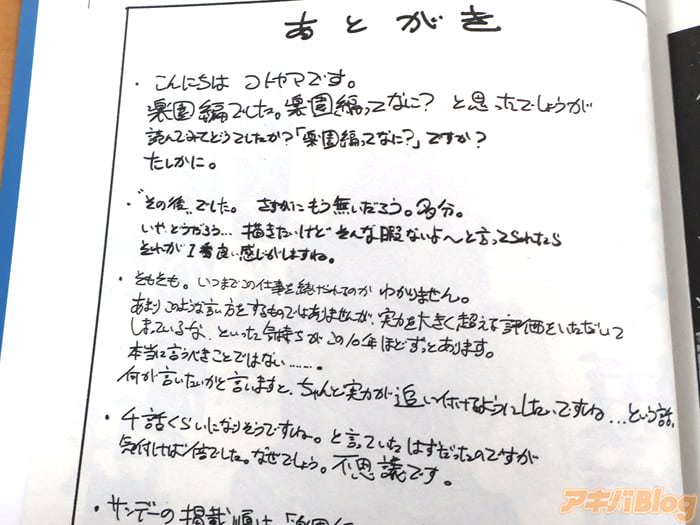 あとがき
・こんにちは コトヤマです。
楽園編でした。楽園編ってなに？ と思ったでしょうが
読んでみてどうでしたか？「楽園編ってなに？」ですか？
たしかに。
・“その後”でした。 さすがにもう無いだろう。多分。
いやどうだろう… 描きたいけど そんな暇ないよ〜と言ってられたら
それが1番良い感じがしますね。
・そもそも。いつまでこの仕事を続けられるのか わかりません。
あまりこのような言い方をするものではありませんが、実力を大きく超える評価をいただいて
しまっているな、といった気持ちがこの10年ほどずっとあります。
本当に言うべきことではない……。
何が言いたいかと言いますと、ちゃんと実力が追い付けるようにしたいですね…という話。
・4話くらいになりそうですね。と言っていたはずだったのですが
気付けば倍でした。なぜでしょう。不思議です。
・サンデーの掲載順は「楽園
アキバBlog